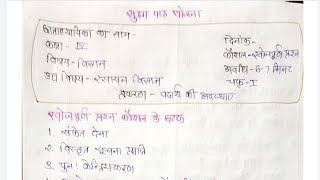 सूक्ष्म पाठ योजना
छात्राध्यापिका का नाम-
दिनाँक-
कक्षा- IX
कौशल- खोजपूर्ण प्रश्न
विषय- विज्ञान
अवधि- 6-7 मिनट
उप विषय- रसायन विज्ञान
चक्र- I
प्रकरण- पदार्थ की अवस्थाएं
खोजपूर्ण प्रश्न कौशल के घटक
1. संकेत देना
2. विस्तृत सूचना प्राप्ति
3. पुनः केन्द्रियकरण